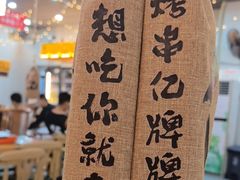 想吃你就
烤串亿牌牌